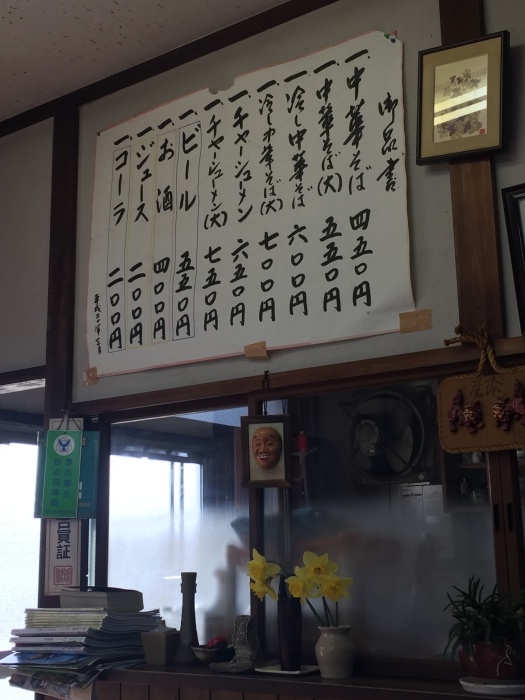 御品書
一、中華そば 四五〇円
一、中華そば(大) 五五〇円
一、冷し中華そば 六〇〇円
一、冷し中華そば(大) 七〇〇円
一、チャーシューメン 六五〇円
一、チャーシューメン(大) 七五〇円
一、ビール 五五〇円
一、お酒 四〇〇円
一、ジュース 二〇〇円
一、コーラ 二〇〇円
食品衛生